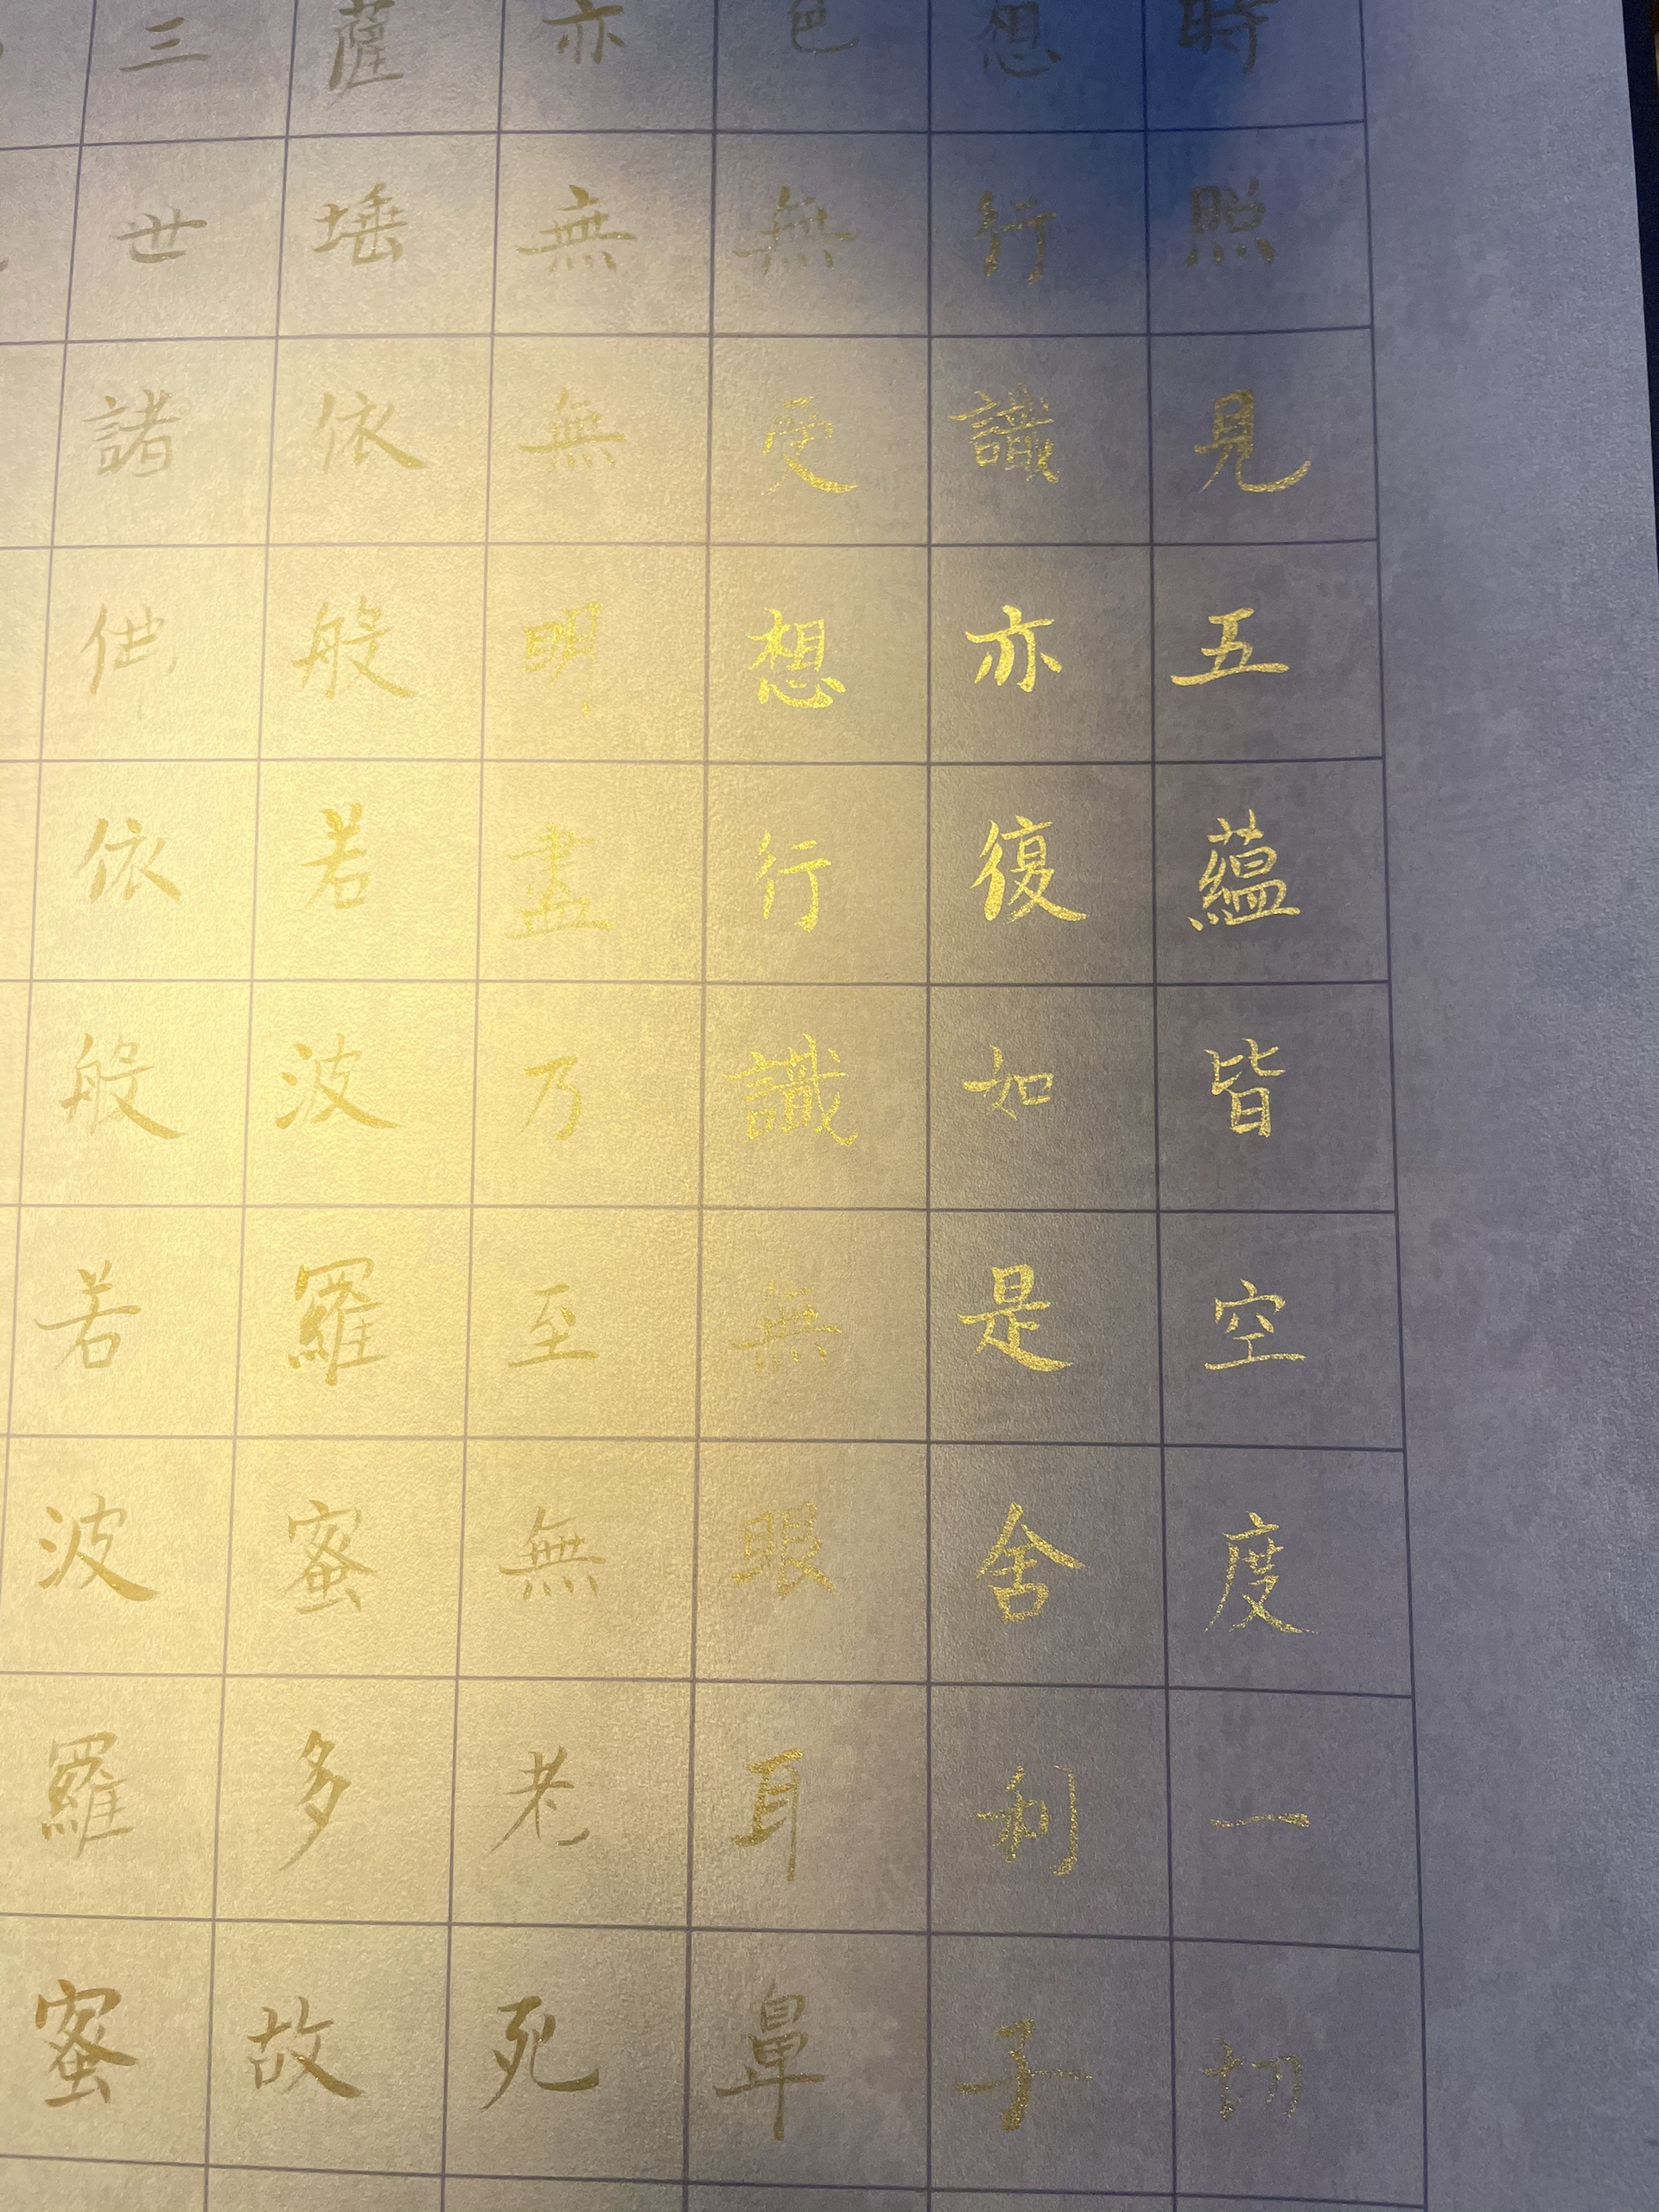 時照見五蘊皆空度一切
想行識亦復如是舍利子
色無受想行識無眼耳鼻
亦無無明盡乃至無老死
薩埵依般若波羅蜜多故
三世諸佛依般若波羅蜜